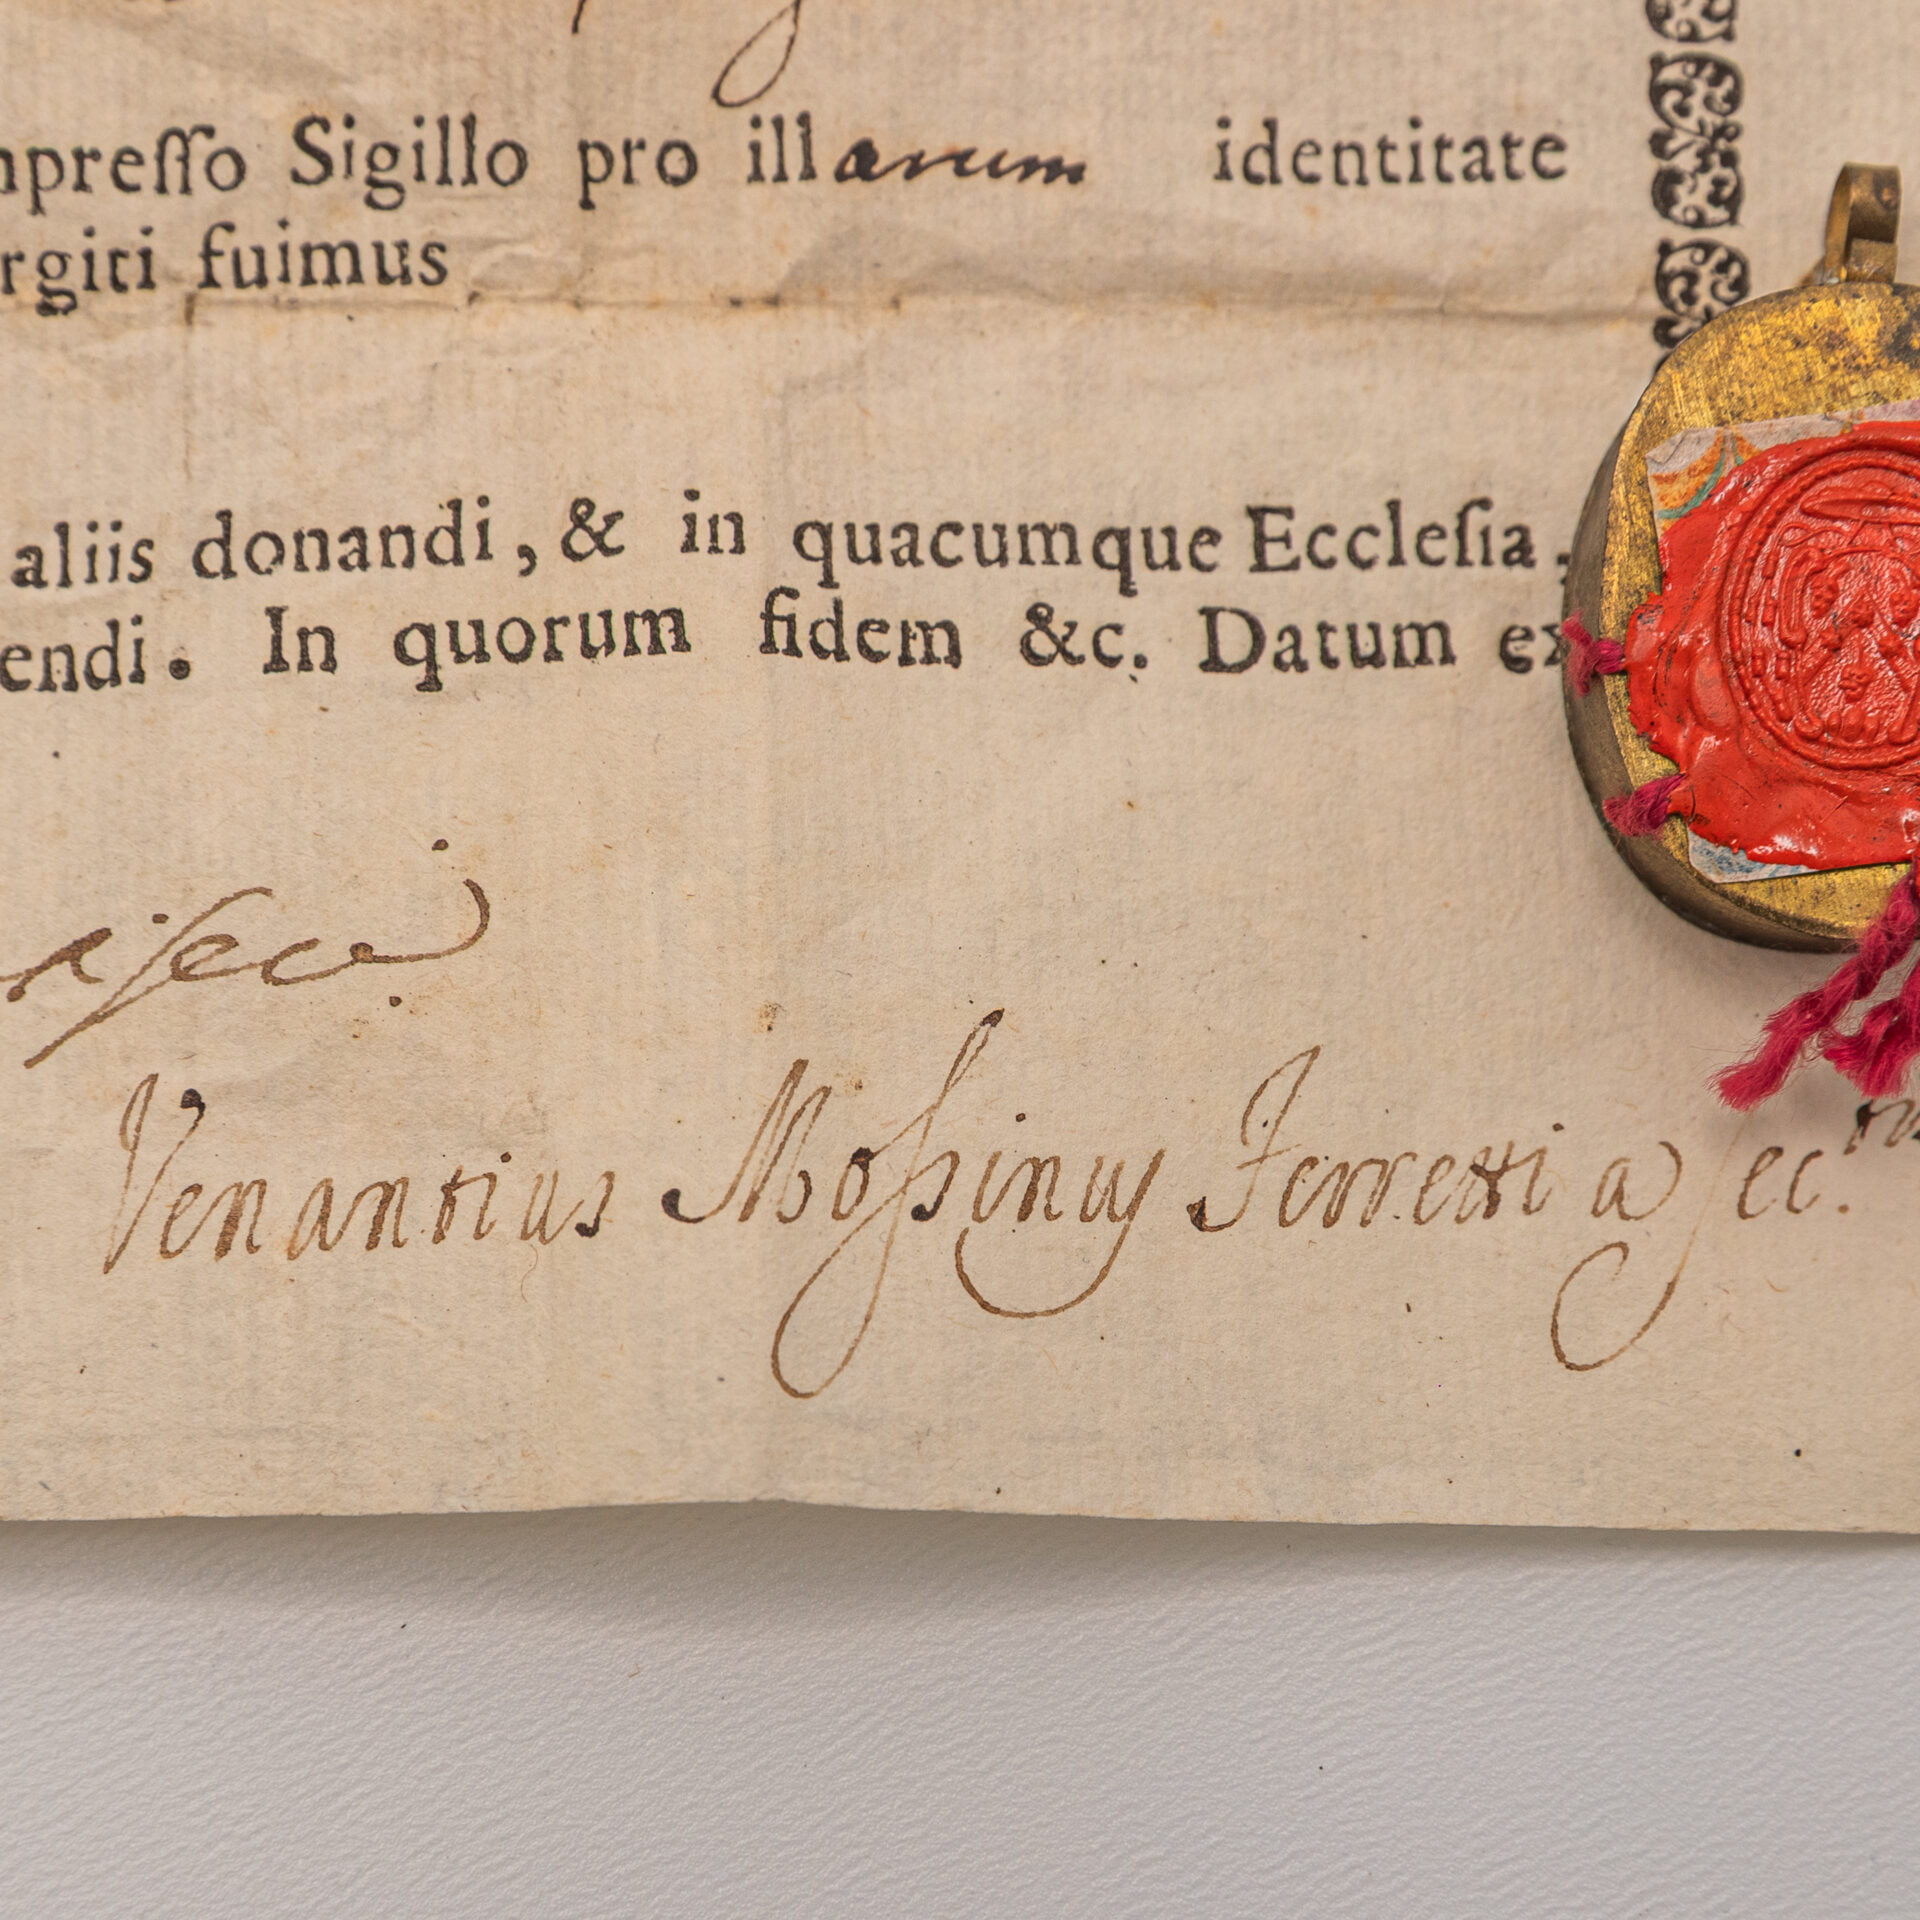 mpreſſo Sigillo pro illarum identitate
rgiti fuimus
aliis donandi, & in quacumque Eccleſia,
endi. In quorum fidem &c. Datum ex
Venantius Moſsinus Ferretti a ſec.